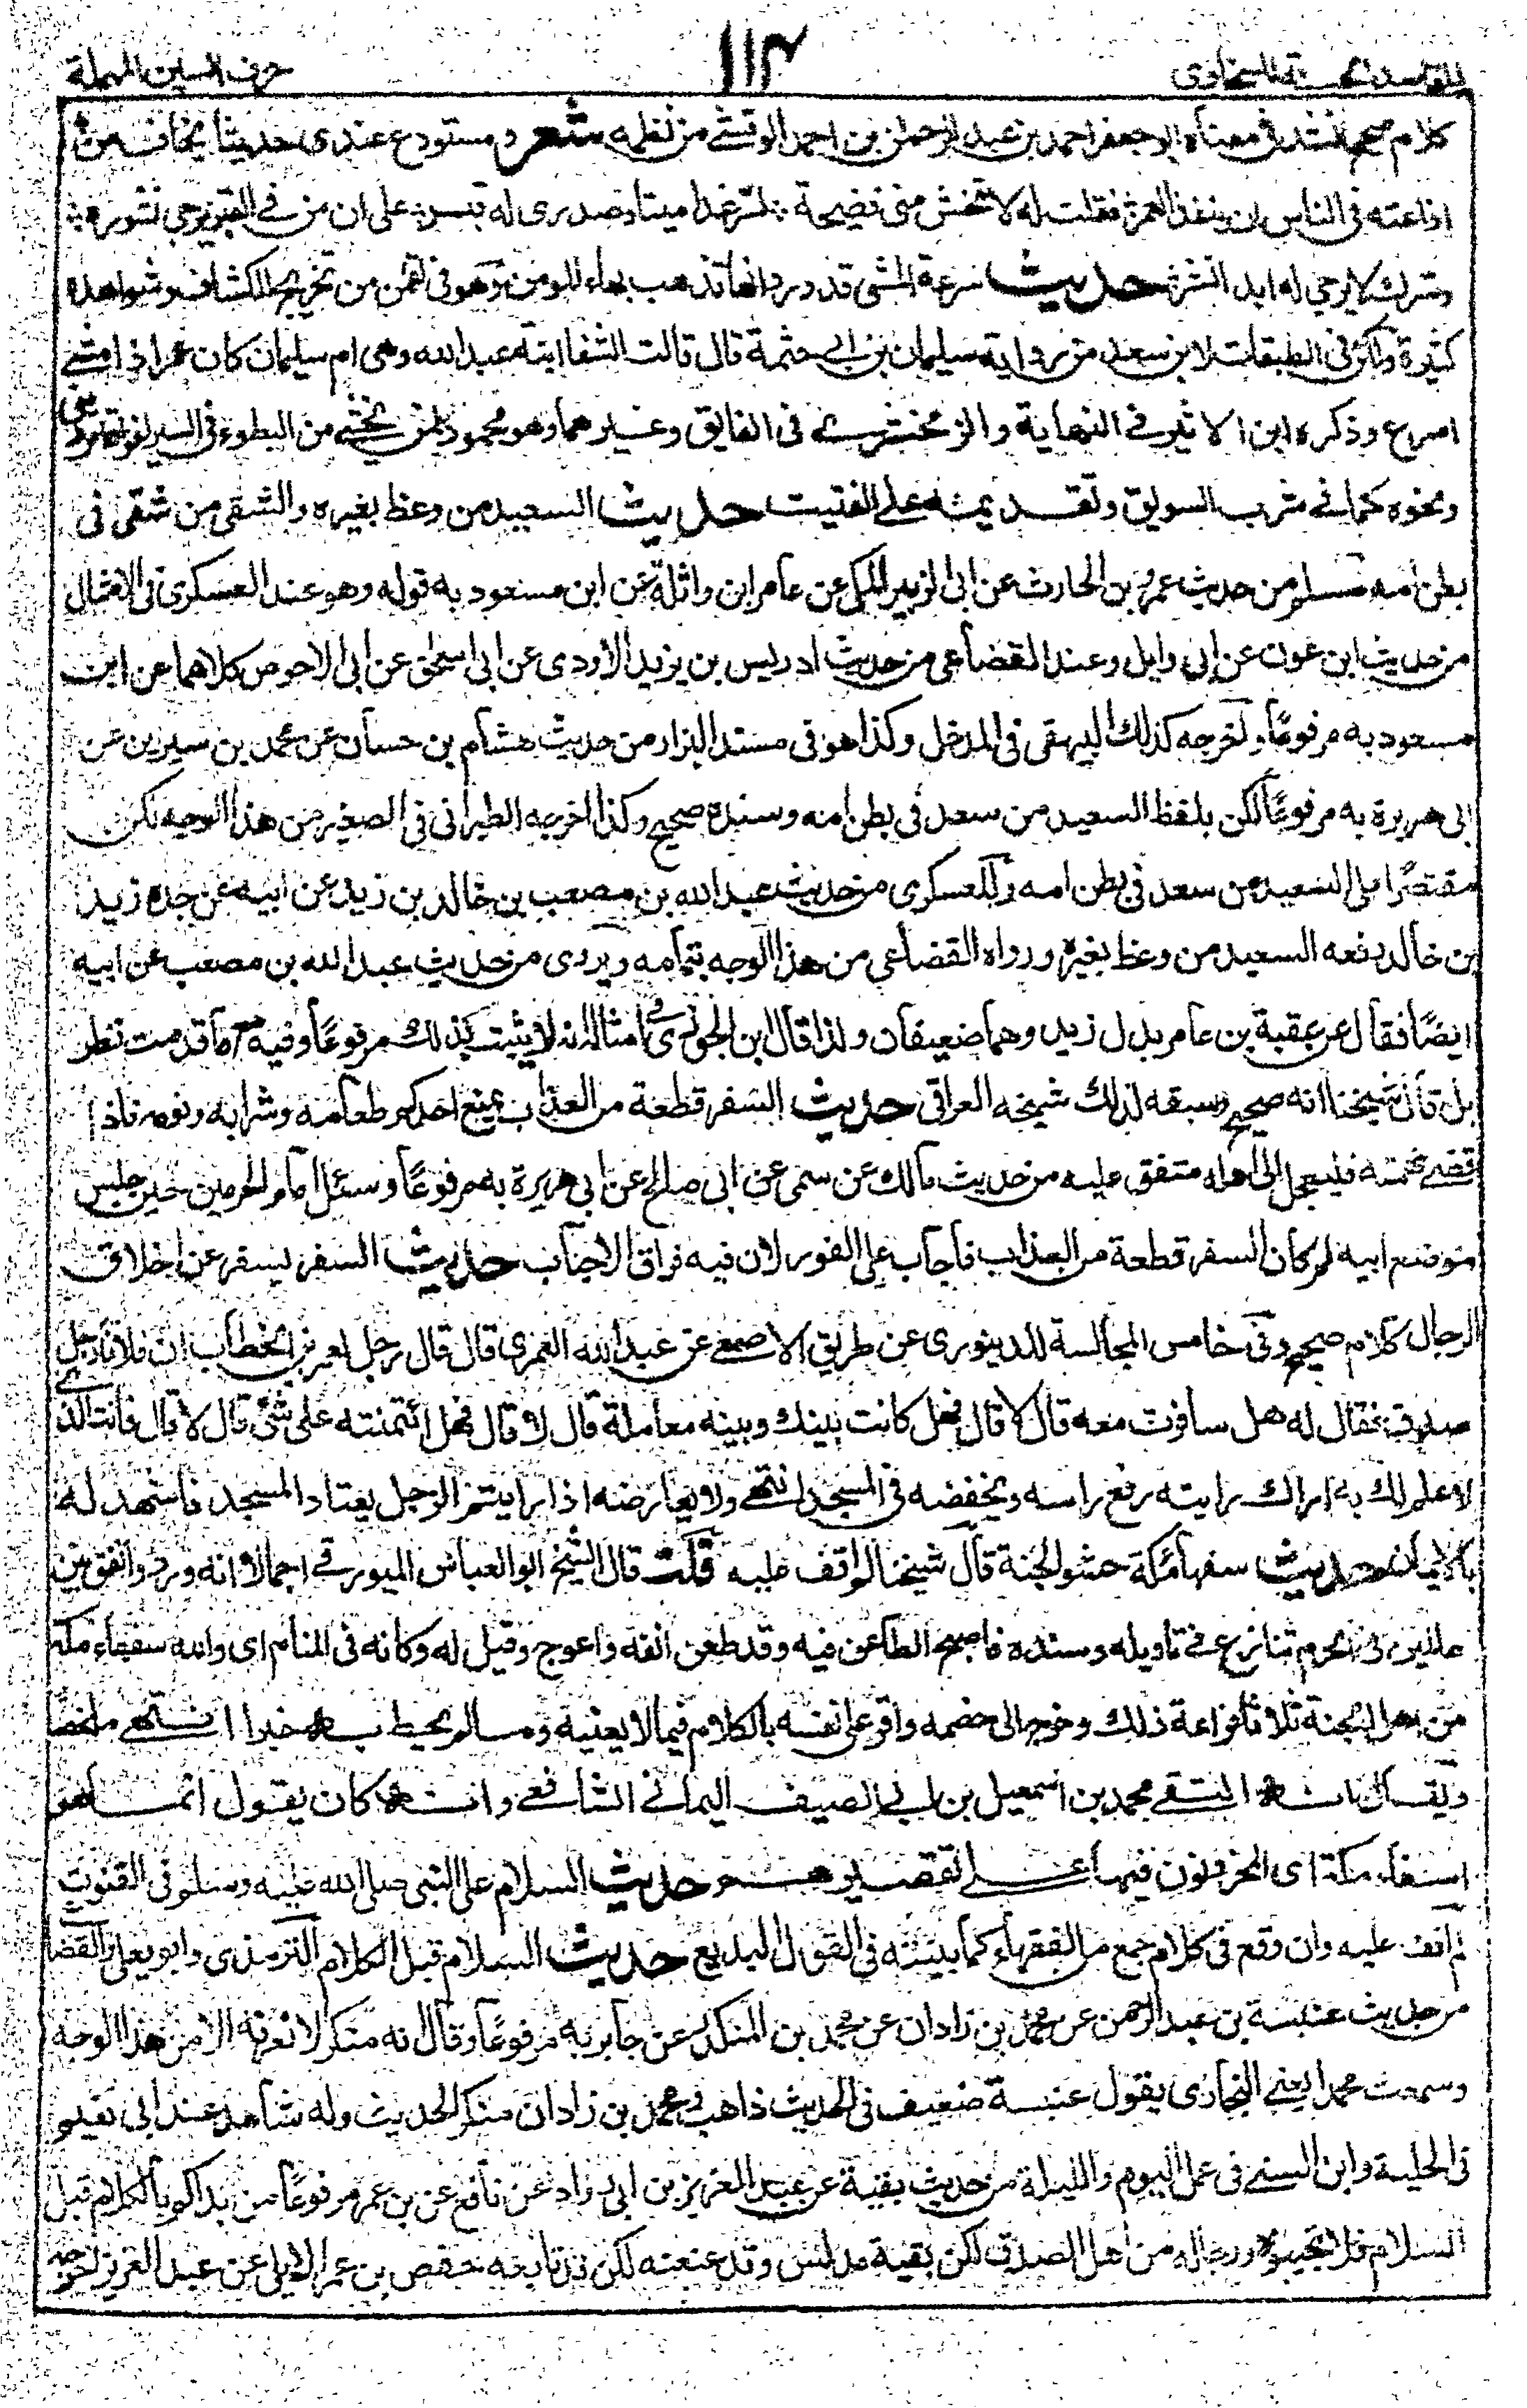 المقاصد الحسنة للسخاوى
١١٣
حرف السين المهملة
كلام صحيح معناه ابو جعفر احمد بن عبد الرحمن بن احمد الوقشے من نظمه شعر ومستودع عندى حديثا يخاف من
اذاعته فى الناس ان ينفذ العمر فقلت له لا تخش منى فضيحة لسر غدا ميتا وصدرى له قبر على ان من فے القبر يرجى نشوره
وسرك لا يرجى له ابدا نشر حديث سرعة المشى قد ورد انها تذهب بهاء المومن وهو فى لقمن من تخريج الكشاف وشواهده
كثيرة ولكن فى الطبقات لابن سعد من رواية سليمان بن ابى حثمة قال قالت الشفا ابنة عبد الله وهى ام سليمان كان عمر اذا مشے
اسرع وذكره ابن الاثير فے النهاية والزمخشرے فى الفايق وغيرهما وهو محمود لمن يخشے من البطوء فى السير تفويت
ونحوه كما فے شرب السويق وتقديمه على الفتيت حديث السعيد من وعظ بغيره والشقى من شقى فى
بطن امه مسلم من حديث عمرو بن الحارث عن ابى الزبير المكى عن عامر ابن واثلة عن ابن مسعود به قوله وهو عند العسكرى فى الامثال
من حديث ابن عون عن ابى وايل وعند القضاعى من حديث ادريس بن يزيد الاودى عن ابى اسحق عن ابى الاحوص كلاهما عن ابن
مسعود به مرفوعًا واخرجه كذلك البيهقى فى المدخل وكذا هو فى مسند البزار من حديث هشام بن حسان عن محمد بن سيرين عن
ابى هريرة به مرفوعًا لكن بلفظ السعيد من سعد فى بطن امه وسنده صحيح وكذا اخرجه الطبرانى فى الصغير من هذا الوجه لكن
مقتصرًا على السعيد من سعد فى بطن امه وللعسكرى من حديث عبد الله بن مصعب بن خالد بن زيد عن ابيه عن جده زيد
بن خالد رفعه السعيد من وعظ بغيره ورواه القضاعى من هذا الوجه بتمامه ويروى من حديث عبد الله بن مصعب عن ابيه
ايضًا فقال عن عقبة بن عامر بدل زيد وهما ضعيفان ولذا قال ابن الجوزى فى امثاله انه لا يثبت كذلك مرفوعًا وفيه مع ما قدمت نظر
بل قال شيخنا انه صحيح وسبقه لذلك شيخه العراقى حديث السفر قطعة من العذاب يمنع احدكم طعامه وشرابه ونومه فاذا
قضے نهمته فليعجل الى اهله متفق عليه من حديث مالك عن سمى عن ابى صالح عن ابى هريرة به مرفوعًا وسئل امام الحرمين حين جلس
موضع ابيه لم كان السفر قطعة من العذاب فاجاب على الفور لان فيه فراق الاحباب حديث السفر يسفر عن اخلاق
الرجال كلام صحيح وفى خامس المجالسة للدينورى عن طريق الاصمعے عن عبد الله العمرى قال قال رجل لعمر بن الخطاب ان فلانا رجل
صدوق فقال له هل سافرت معه قال لا قال فهل كانت بينك وبينه معاملة قال لا قال فهل ائتمنته على شئ قال لا قال فانت الذے
لا علم لك به اراك رايته رفع راسه ويخفضه فى المسجد انتهے ولا يعارضه اذا رايتم الرجل يعتاد المسجد فاشهد له
بالايمان حديث سفهاء مكة حشو الجنة قال شيخنا لم اقف عليه قلت قال الشيخ ابو العباس الميورقے اجمالا انه ورد واتفق بين
عالمين فى الحرم تنازع فے تاويله وسنده فاصبح الطاعن فيه وقد طعن انفه واعوج وقيل له وكانه فى المنام اى والله سفهاء مكة
من اهل الجنة ثلاثا فراعه ذلك وخرج الى خصمه واقر على نفسه بالكلام فيما لا يعنيه وما لم يحط به خبرا انتهے ملخصا
ويقال انه التقے محمد بن اسمعيل بن ابى الصيف اليمانے الشافعے وانه كان يقول انما هو
اسفاء مكة اى المحزونون فيها علے تقصيرهم حديث السلام على النبى صلى الله عليه وسلم فى القنوت
لم اقف عليه وان وقع فى كلام جمع من الفقهاء كما بينته فى القول البديع حديث السلام قبل الكلام الترمذى وابو يعلى والقضا
من حديث عنبسة بن عبد الرحمن عن محمد بن زاذان عن محمد بن المنكدر عن جابر به مرفوعًا وقال انه منكر لا نعرفه الا من هذا الوجه
وسمعت محمدا يعنے البخارى يقول عنبسة ضعيف فى الحديث ذاهب ومحمد بن زاذان منكر الحديث وله شاهد عند ابى نعيم
فى الحلية وابن السنے فى عمل اليوم والليلة من حديث بقية عن عبد العزيز بن ابى رواد عن نافع عن بن عمر مرفوعًا من بداكم بالكلام قبل
السلام فلا تجيبوه ورجاله من اهل الصدق لكن بقية مدلس وقد عنعنه لكن قد تابعه حفص بن عمر الايلى عن عبد العزيز اخرجه